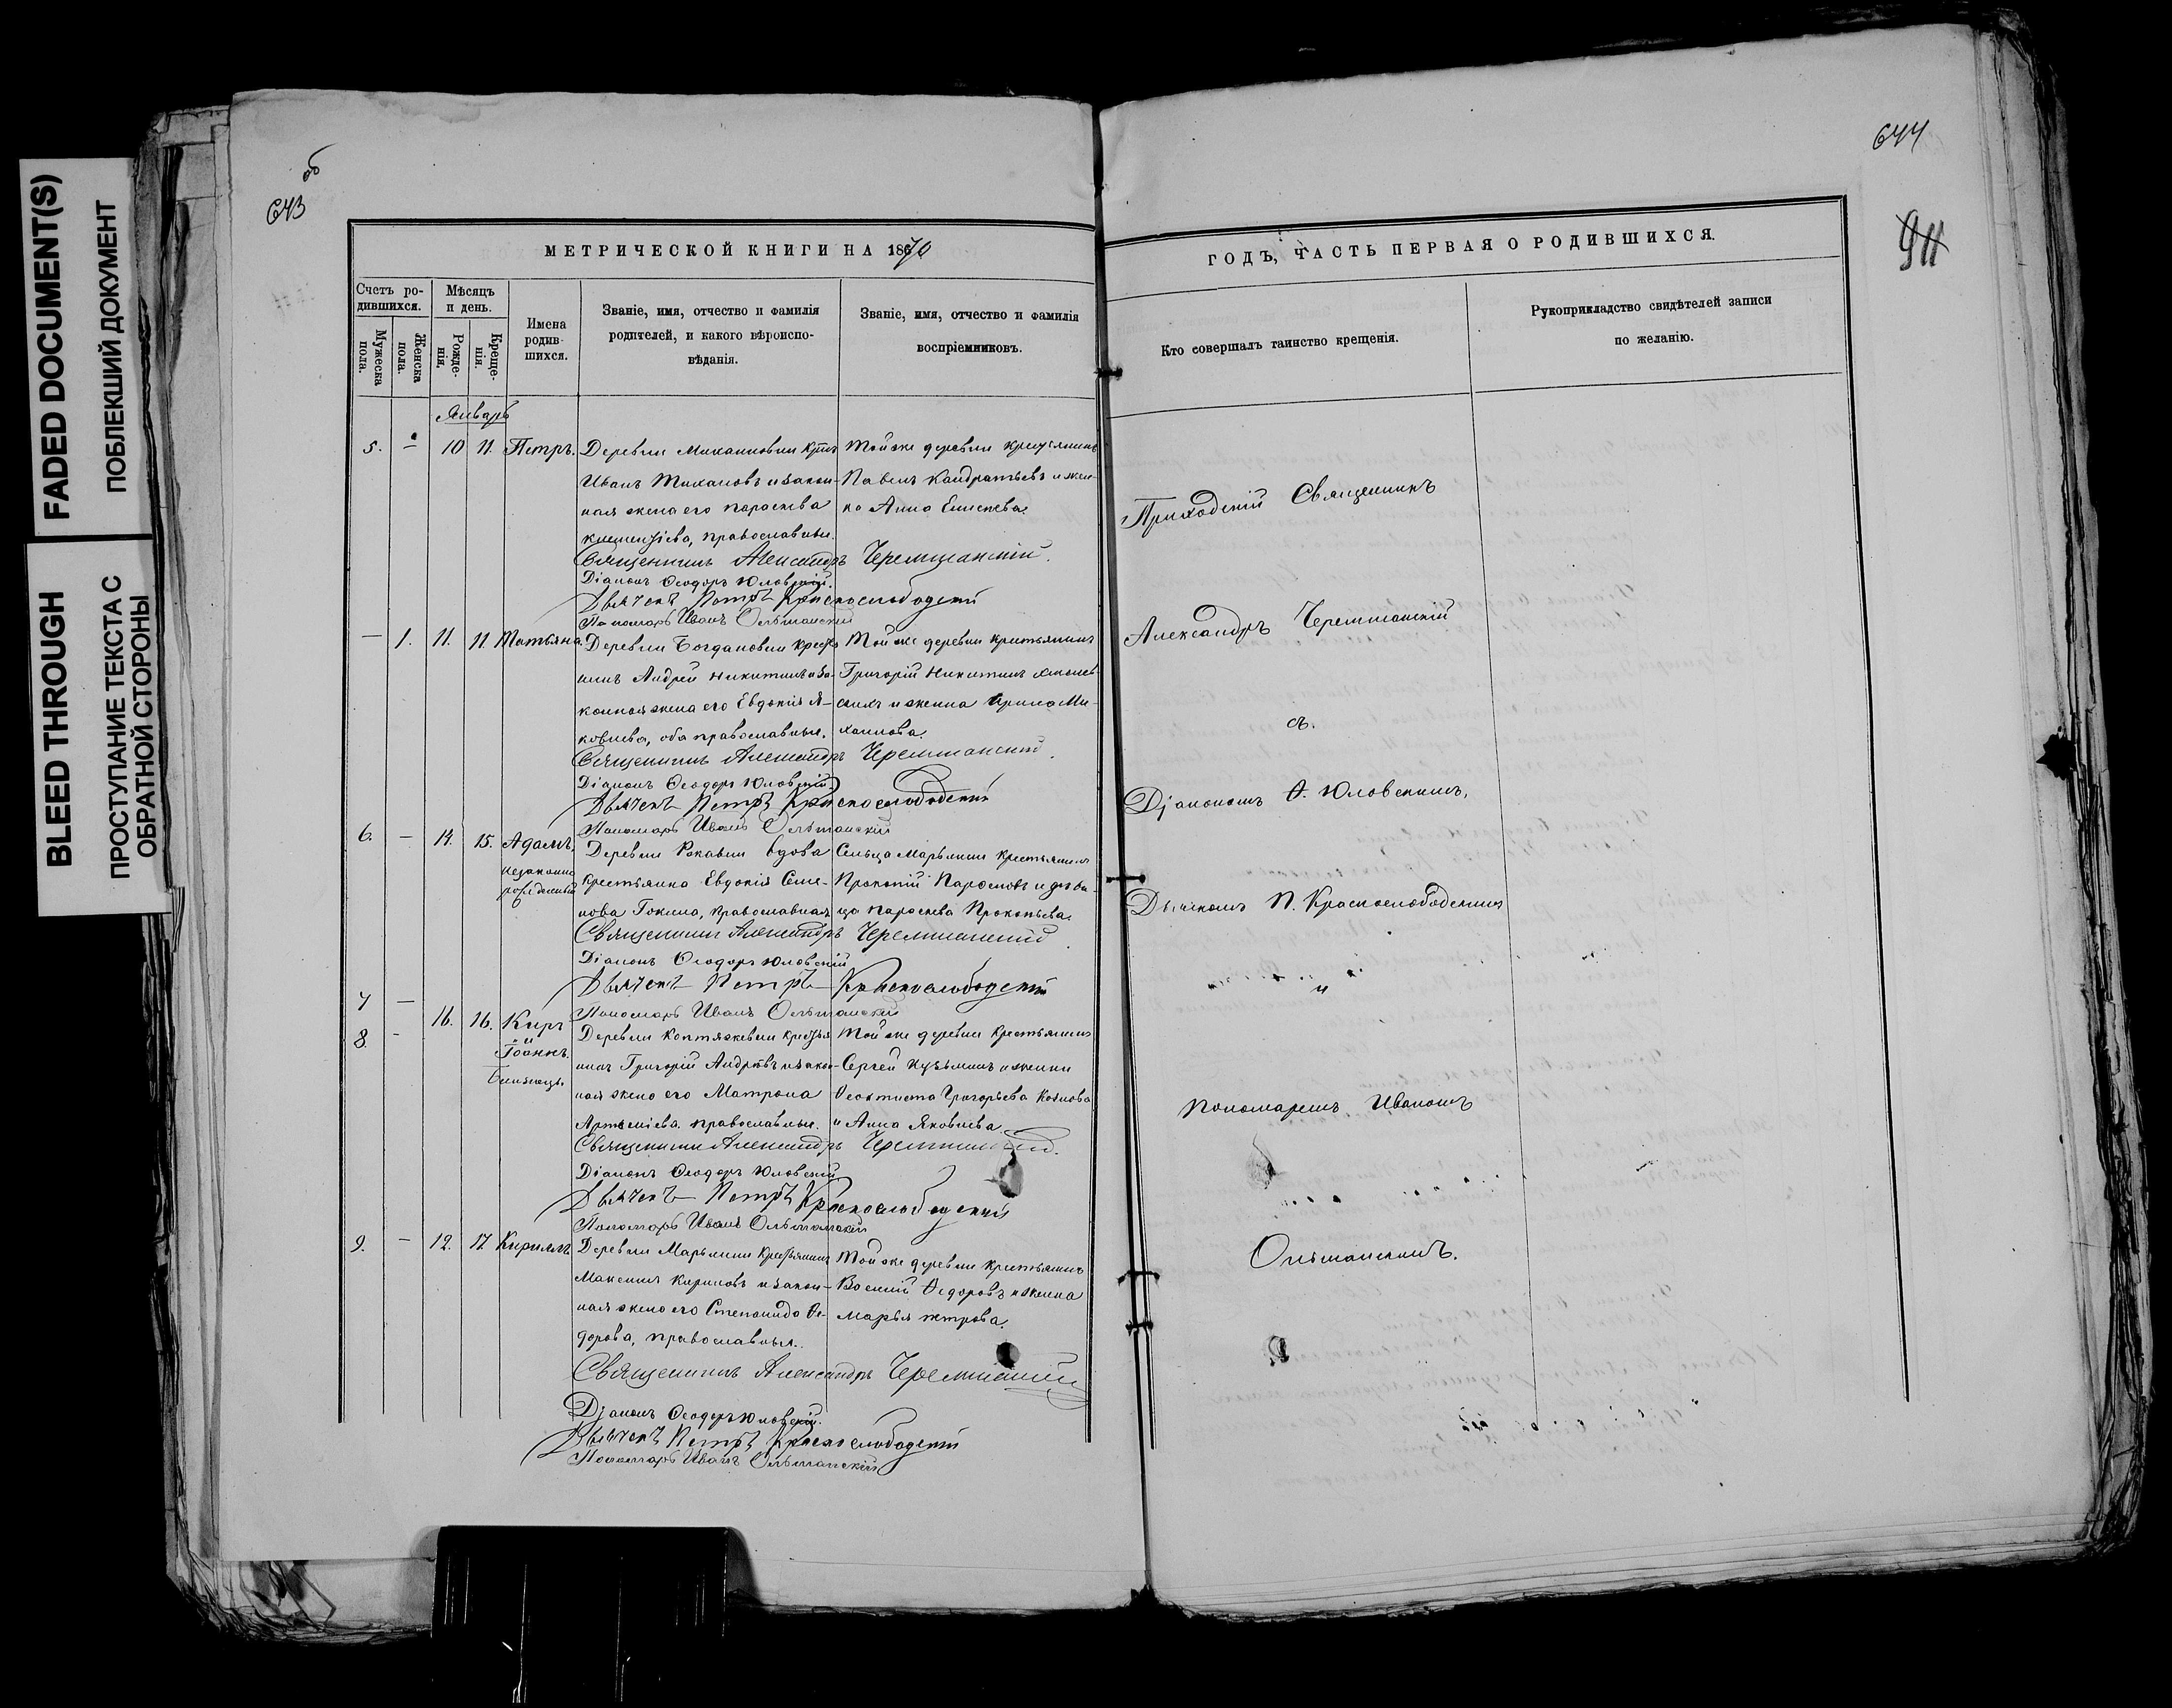 FADED DOCUMENT(S)
ПОБЛЕКШИЙ ДОКУМЕНТ
BLEED THROUGH
ПРОСТУПАНИЕ ТЕКСТА С
ОБРАТНОЙ СТОРОНЫ
об
643
МЕТРИЧЕСКОЙ КНИГИ НА 1870
Счетъ ро-
дившихся.
Мужеска
пола.
Женска
пола.
Мѣсяцъ
и день.
Рожде-
нія.
Креще-
нія.
Имена
родив-
шихся.
Званіе, имя, отчество и фамилія
родителей, и какого вѣроиспо-
вѣданія.
Званіе, имя, отчество и фамилія
воспріемниковъ.
Январь
5. — 10 11. Петръ.
Деревни
Иванъ и закон-
ная жена его Параскева
православные.
Той же деревни крестьянинъ
Павелъ Кондратьевъ и жен-
ка Анна Елисеева.
Священникъ Александръ Черемшанскій.
Діаконъ Ѳеодоръ Юловскій.
Дьячекъ Петръ Краснослободскій
Пономарь Иванъ Ольшанскій
— 1. 11. 11. Татьяна.
Деревни Богдановки
нинъ Андрей Никитинъ и за-
конная жена его Евдокія Я-
ковлева, оба православные.
Той же деревни крестьянинъ
Григорій Никитинъ
и женка Ирина Ми-
хаилова.
Священникъ Александръ Черемшанскій.
Діаконъ Ѳеодоръ Юловскій.
Дьячекъ Петръ Краснослободскій
Пономарь Иванъ Ольшанскій
6. — 14. 15. Адамъ,
незаконно
рожденный
Деревни вдова
крестьянка Евдокія Семе-
нова православная
Сельца Марьинки крестьянинъ
Прокопій и дѣви-
ца Параскева Прокопьева.
Священникъ Александръ Черемшанскій.
Діаконъ Ѳеодоръ Юловскій
Дьячекъ Петръ Краснослободскій
Пономарь Иванъ Ольшанскій
7 —
8. — 16. 16. Киръ
и
Іоаннъ.
Близнецы.
Деревни Коптяжевки
нинъ Григорій Андреевъ и закон-
ная жена его Матрона
Артеміева, православные.
Той же деревни крестьянинъ
Сергей Кузьминъ и женки
Ѳеоктиста Григорьева Козлова
и Анна Яковлева.
Священникъ Александръ Черемшанскій.
Діаконъ Ѳеодоръ Юловскій
Дьячекъ Петръ Краснослободскій
Пономарь Иванъ Ольшанскій
9. — 12. 17 Кириллъ
Деревни Марьинки крестьянинъ
Максимъ Кириловъ и закон-
ная жена его Степанида Ѳе-
дорова, православные.
Той же деревни крестьянинъ
Василій Ѳедоровъ и женка
Марья Петрова.
Священникъ Александръ Черемшанскій
Діаконъ Ѳеодоръ Юловскій.
Дьячекъ Петръ Краснослободскій
Пономарь Иванъ Ольшанскій
644
911
ГОДЪ, ЧАСТЬ ПЕРВАЯ О РОДИВШИХСЯ.
Кто совершалъ таинство крещенія.
Рукоприкладство свидѣтелей записи
по желанію.
Приходскій Священникъ
Александръ Черемшанскій
съ.
Діакономъ Ѳ. Юловскимъ,
Дьячкомъ П. Краснослободскимъ
и
Пономаремъ Иваномъ
Ольшанскимъ.